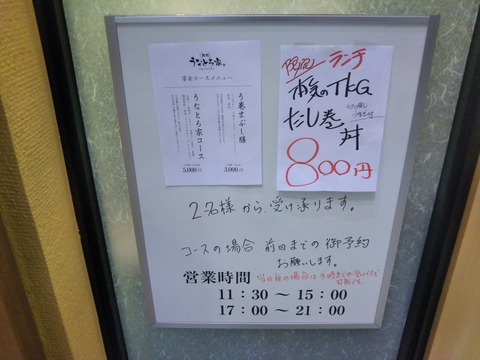 うなとろ家。
宴会コースメニュー
う巻まぶし膳
3,000円
うなとろ家コース
5,000円
限定 ランチ
本気のTKG
だし巻
丼
800円
2名様から受け承ります。
コースの場合 前日までの御予約
お願いします。
営業時間
11:30〜15:00
17:00〜21:00